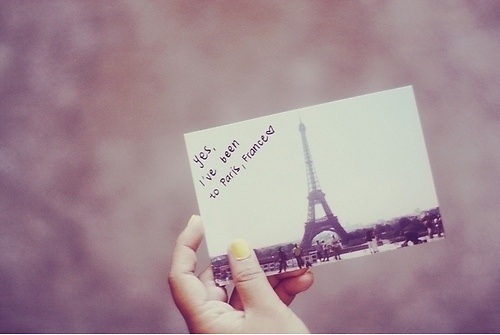 yes,
I've been
to Paris, France♡